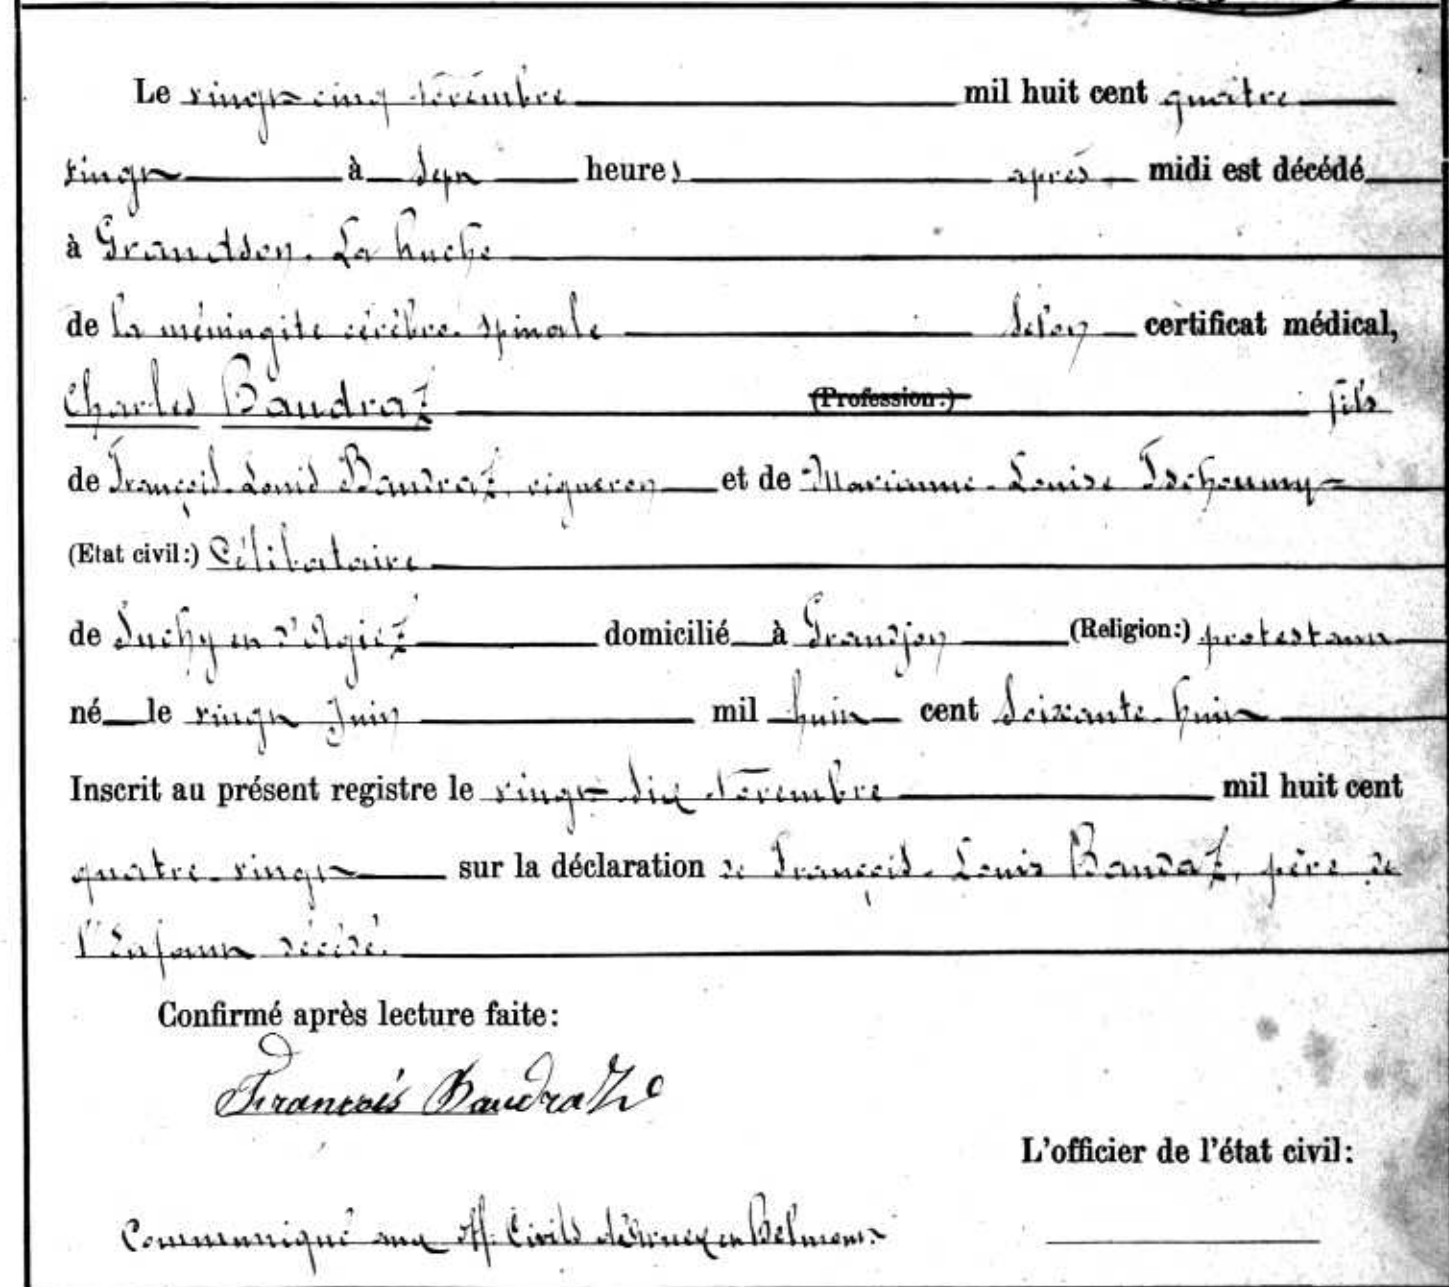 Le vingt-cinq Novembre mil huit cent quatre
vingt à sept heures après midi est décédé
à Grandson. La huche
de la méningite cérébro-spinale selon certificat médical,
Charles Baudraz (Profession:) fils
de François-Louis Baudraz, vigneron et de Marianne-Louise Tschoumy
(Etat civil:) Célibataire
de Suchy et d'Agiez domicilié à Grandson (Religion:) protestant
né le vingt Juin mil huit cent soixante-huit
Inscrit au présent registre le vingt-six Novembre mil huit cent
quatre-vingt sur la déclaration de François-Louis Baudaz, père de
l'enfant décédé.
Confirmé après lecture faite:
François Baudraz
L'officier de l'état civil:
Communiqué aux off. Civils de et Belmont